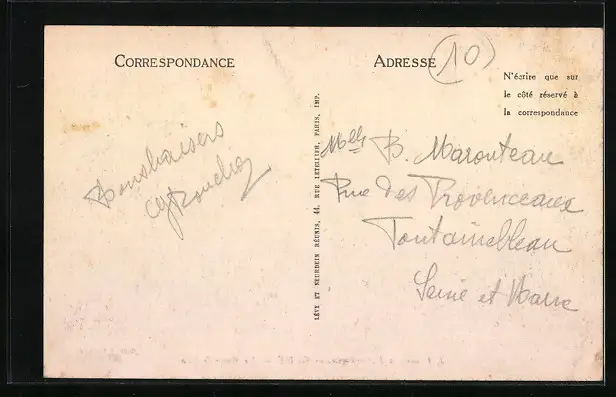 CORRESPONDANCE
ADRESSE
10
N'écrire que sur
le côté réservé à
la correspondance
Bons baisers
LÉVY ET NEURDEIN RÉUNIS, 44, RUE LETELLIER, PARIS, IMP.
Mlle B. Marouteau
Rue des Provenceaux
Fontainebleau
Seine et Marne